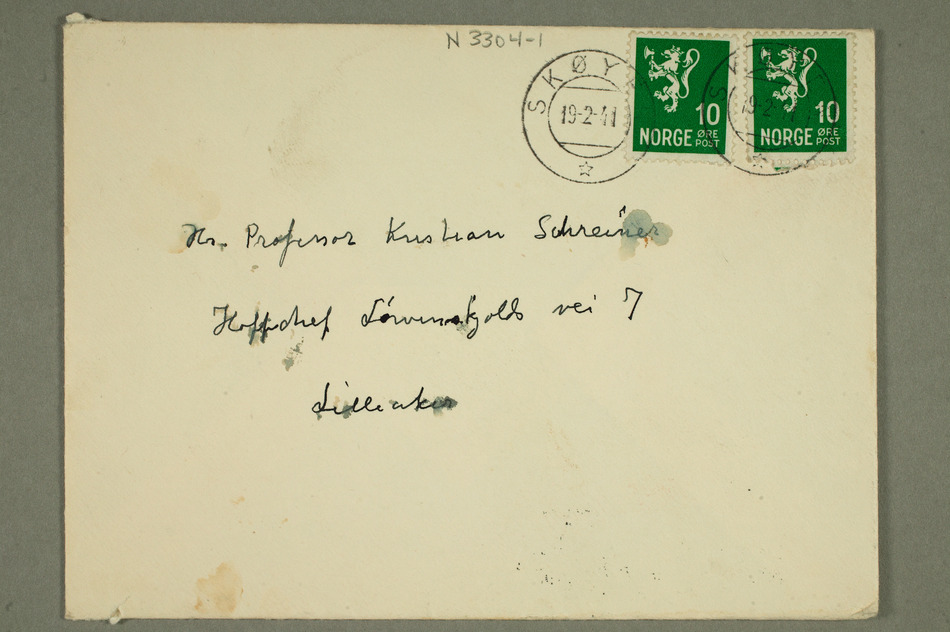 N 3304-1
SKØYEN
19-2-41
10
NORGE ØRE POST
19-2-41
10
NORGE ØRE POST
Hr. Professor Kristian Schreiner
Hoffschef Løvenskjolds vei 7
Lilleaker